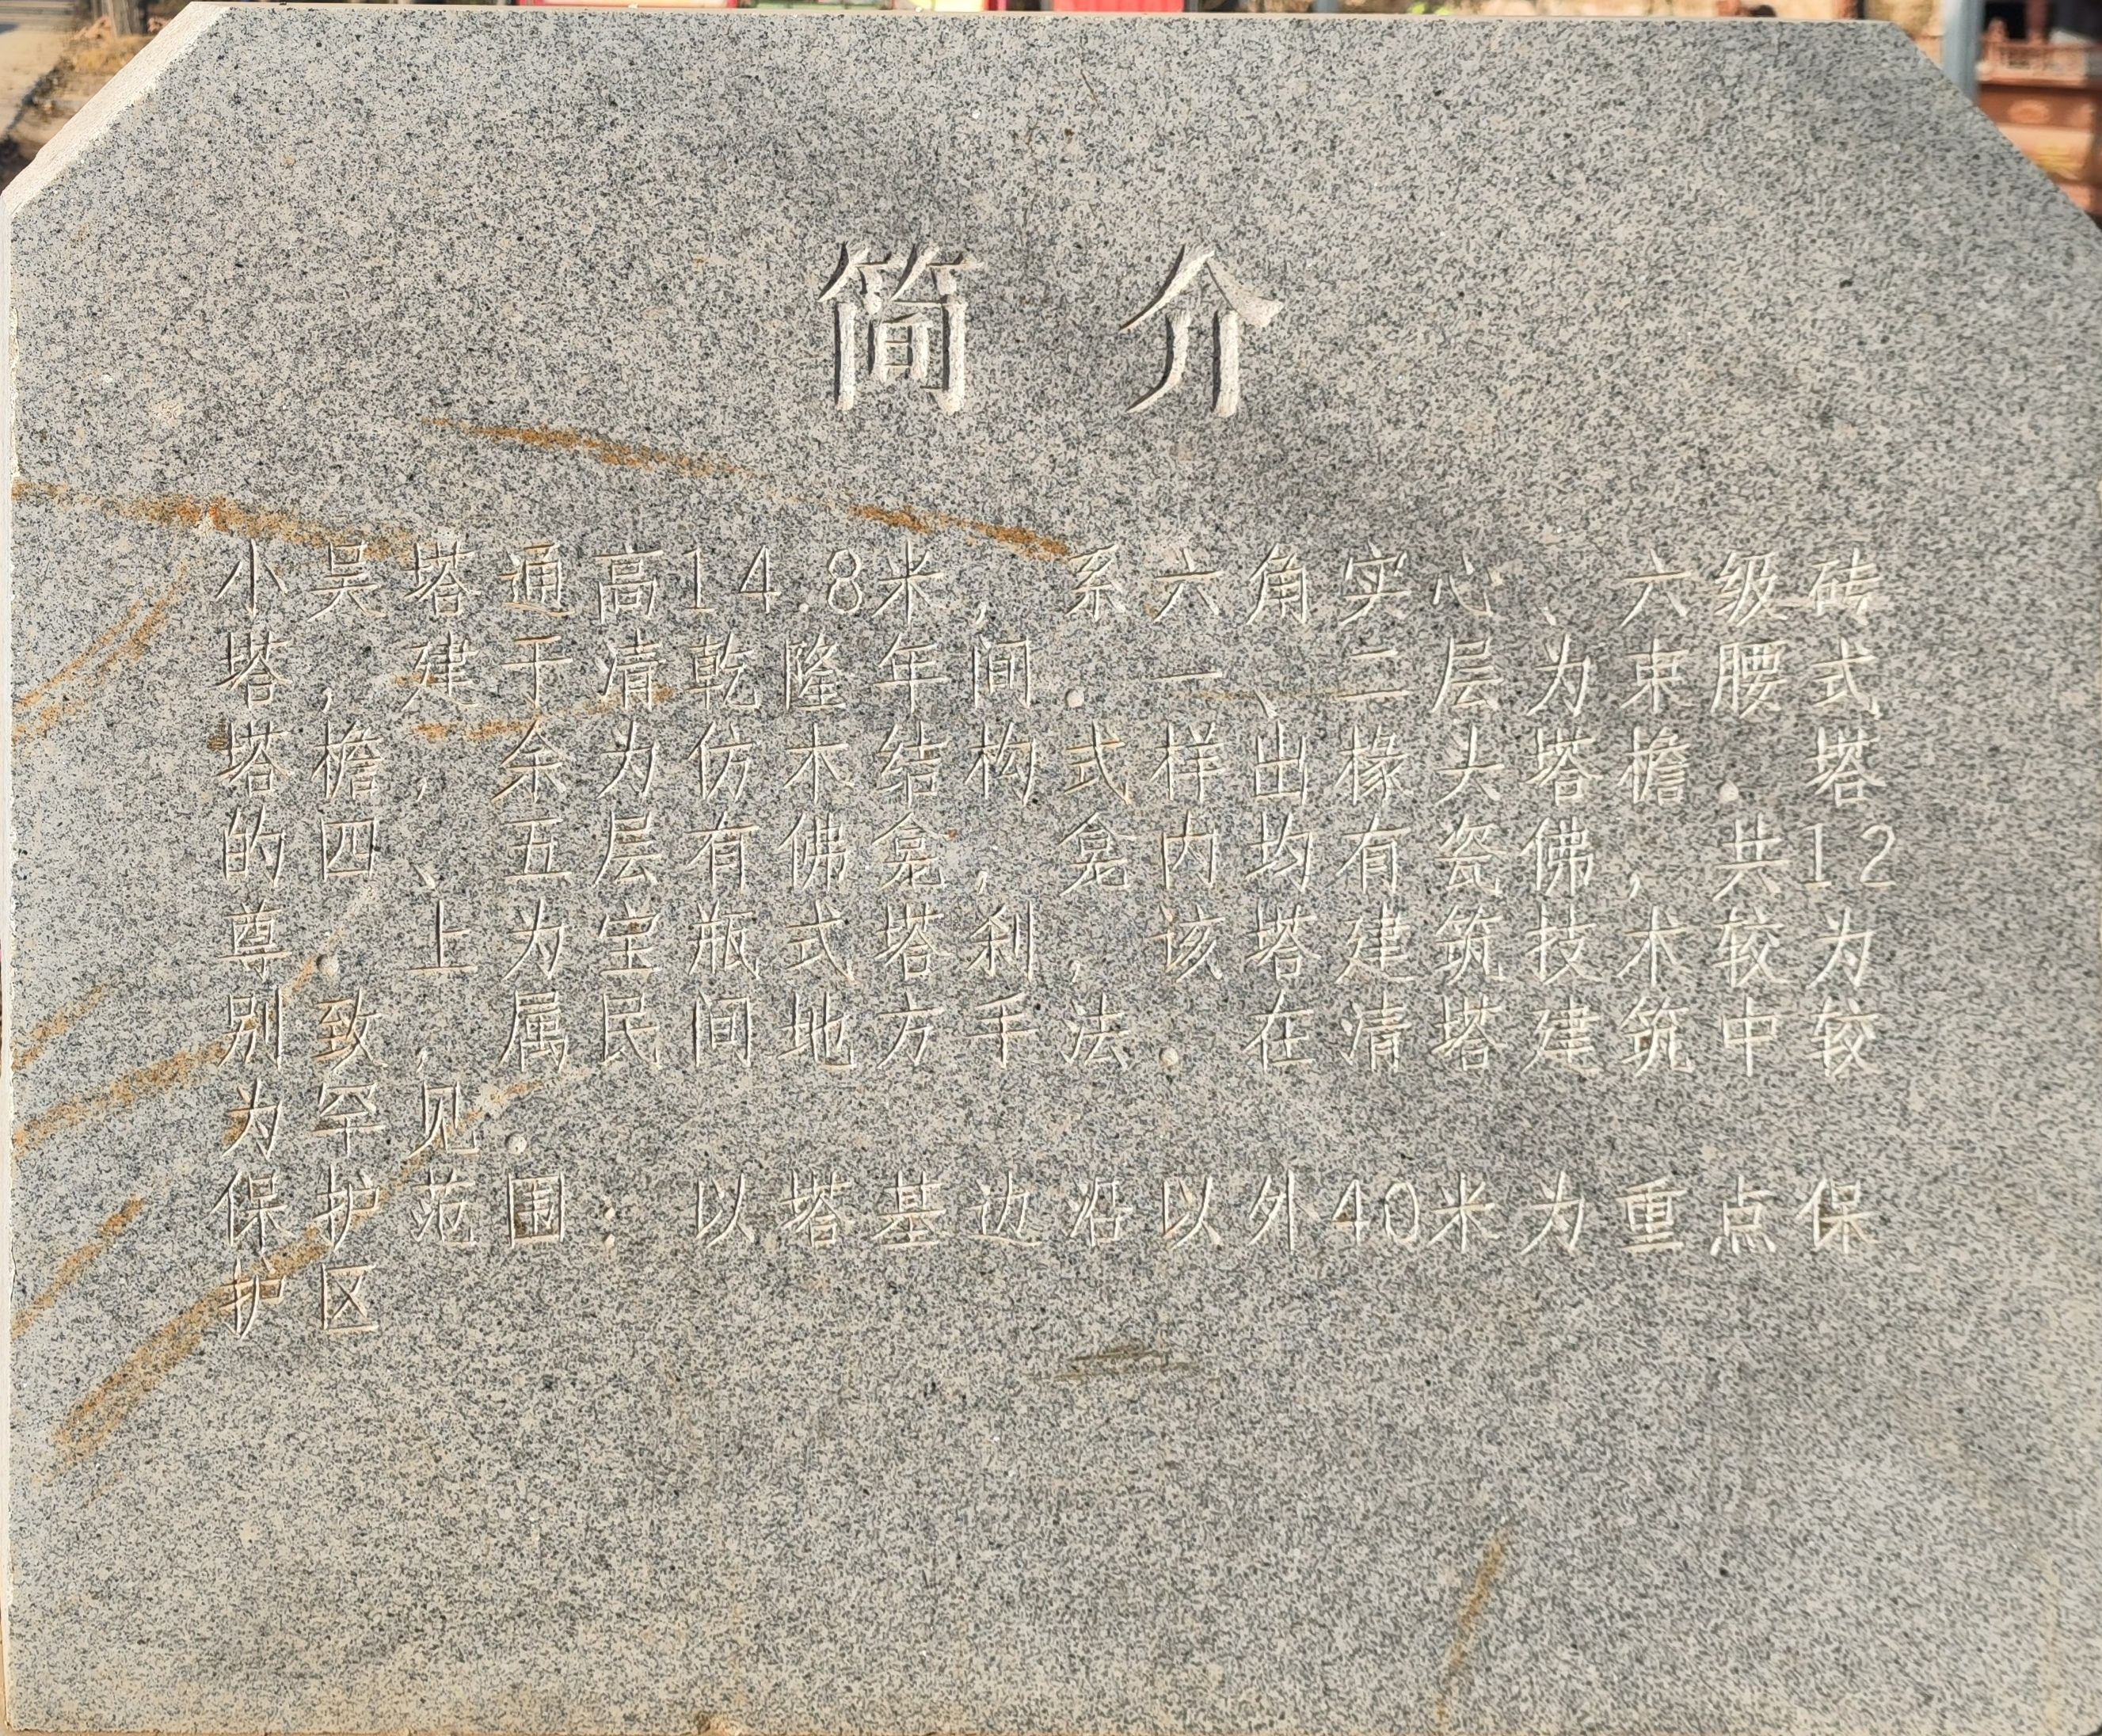 简介
小吴塔通高14.8米，系六角实心、六级砖
塔，建于清乾隆年间。一、二层为束腰式
塔檐，余为仿木结构式样出椽头塔檐。塔
的四、五层有佛龛，龛内均有瓷佛，共12
尊。上为宝瓶式塔刹，该塔建筑技术较为
别致，属民间地方手法。在清塔建筑中较
为罕见。
保护范围：以塔基边沿以外40米为重点保
护区